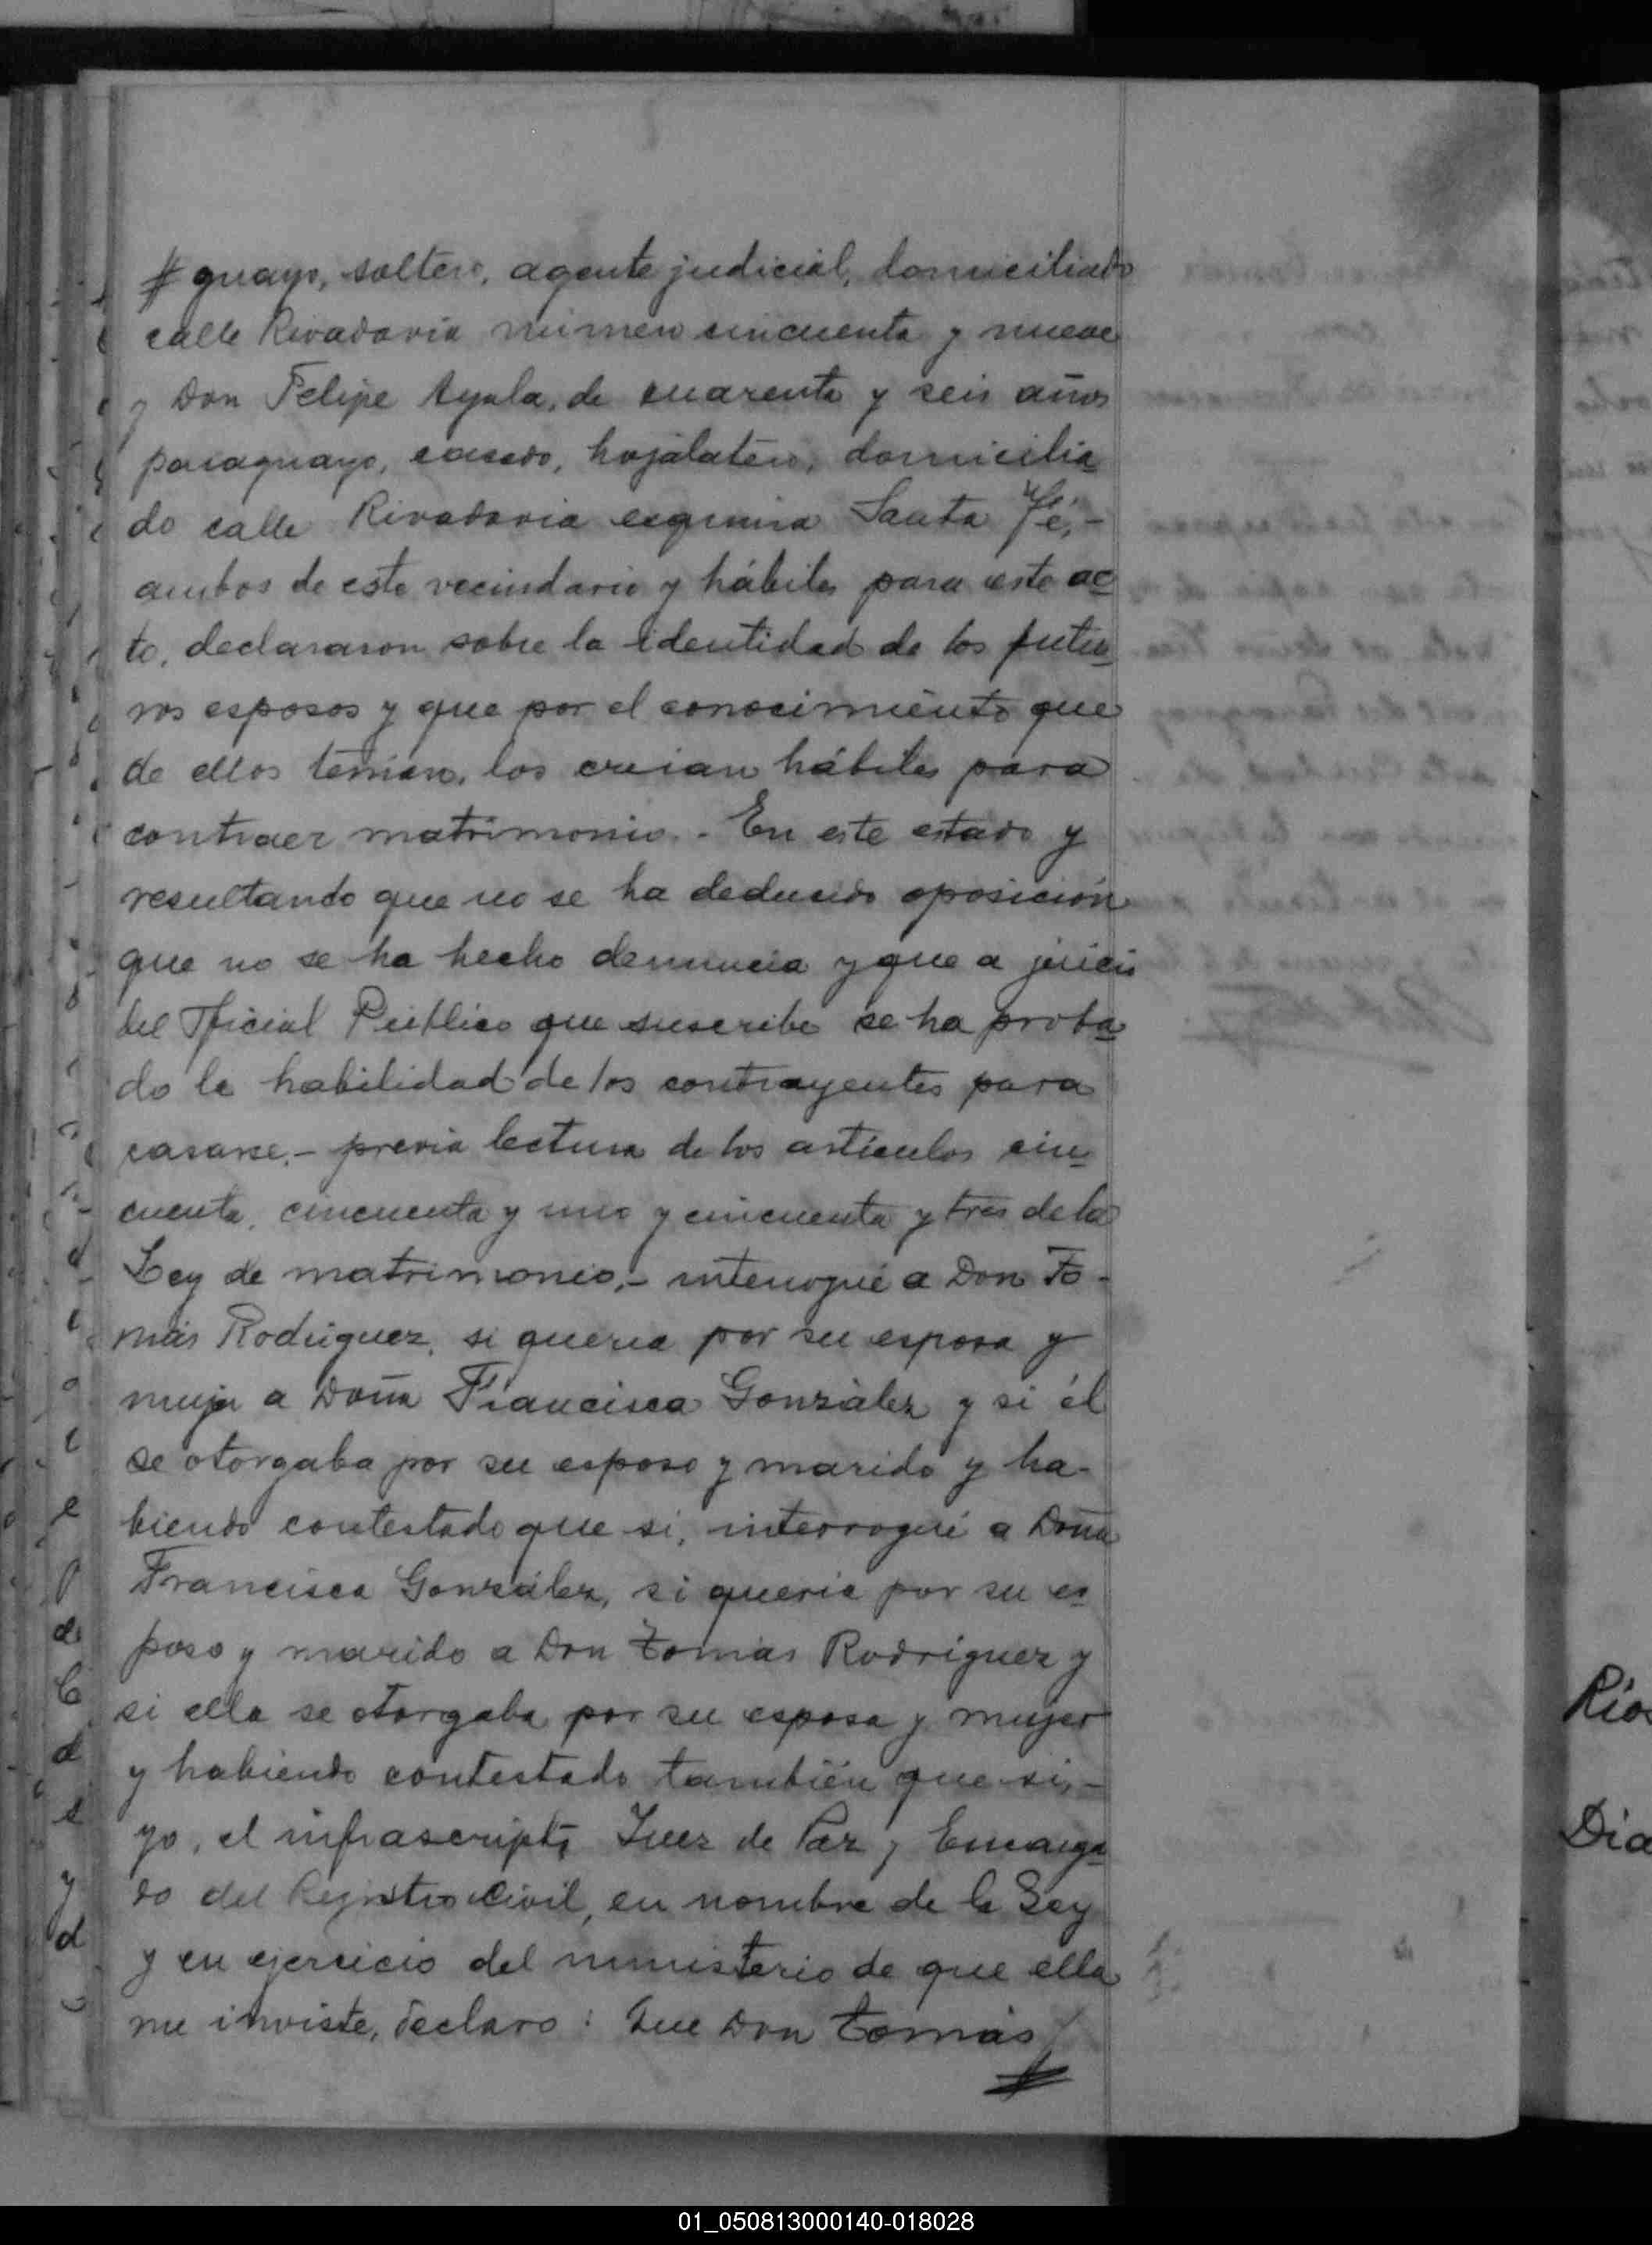 # guayo, soltero, agente judicial, domiciliado
calle Rivadavia número cincuenta y nueve
y Don Felipe Ayala, de cuarenta y seis años
paraguayo, casado, hojalatero, domicilia
do calle Rivadavia esquina Santa Fé,-
ambos de este vecindario y hábiles para este ac
to, declararon sobre la identidad de los futu
ros esposos y que por el conocimiento que
de ellos tenian, los creian hábiles para
contraer matrimonio.- En este estado y
resultando que no se ha deducido oposición
que no se ha hecho denuncia y que a juicio
del Oficial Público que suscribe se ha proba
do la habilidad de los contrayentes para
casarse,- previa lectura de los artículos cin
cuenta, cincuenta y uno y cincuenta y tres de la
Ley de matrimonio,- interrogué a Don To-
más Rodriguez, si queria por su esposa y
mujer a Doña Francisca González y si él
se otorgaba por su esposo y marido y ha-
biendo contestado que si, interrogué a Doña
Francisca González, si queria por su es
poso y marido a Don Tomás Rodriguez y
si ella se otorgaba por su esposa y mujer
y habiendo contestado también que si,-
yo, el infrascripto Juez de Paz y Encarga
do del Registro Civil, en nombre de la Ley
y en ejercicio del ministerio de que ella
me inviste, declaro: Que Don Tomás
#
Rios
Dia
01_050813000140-018028